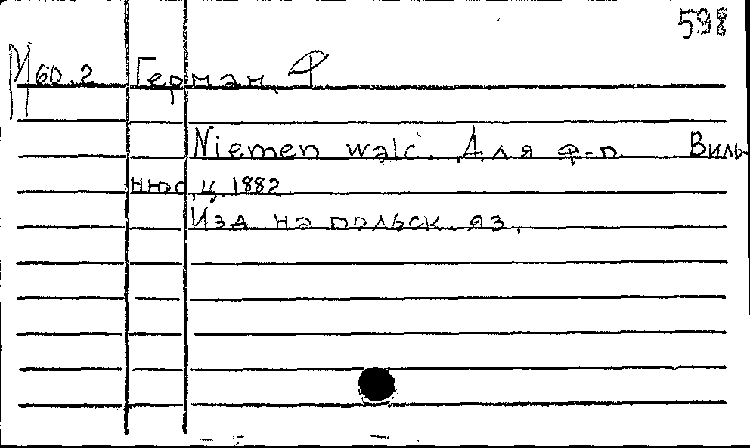 598
М 60.2 Герман, Ф
Niemen walc. Для ф-п Виль-
нюс, ц. 1882
Изд на польск. яз.